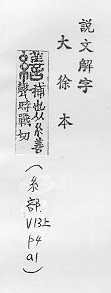 說文解字
大徐本
繕
補也从糸善
聲時戰切
(糸部
V13上
p4
a1)